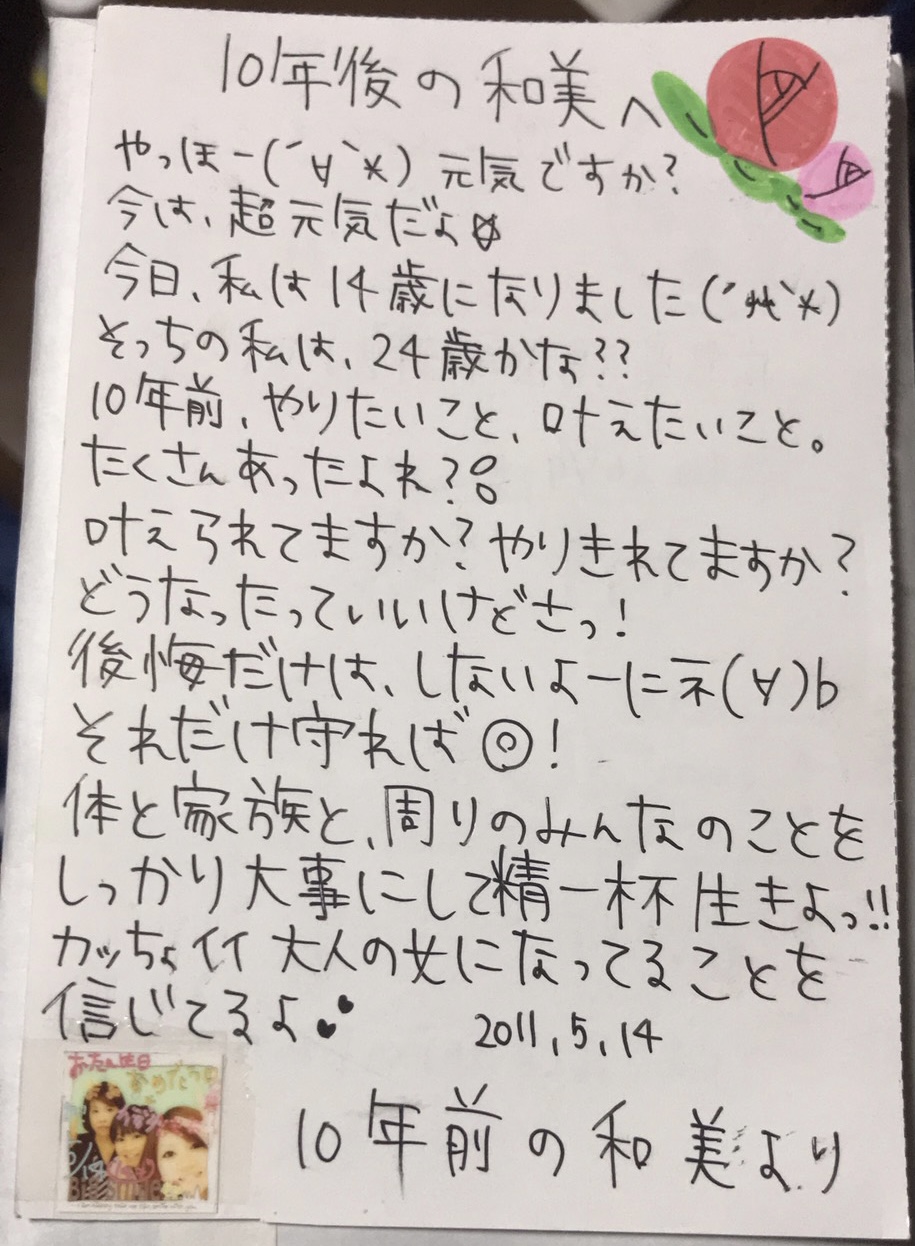 10年後の和美へ
やっほー(´∀`*)元気ですか?
今は、超元気だよ☆
今日、私は14歳になりました(´艸`*)
そっちの私は、24歳かな??
10年前、やりたいこと、叶えたいこと。
たくさんあったよね?
叶えられてますか?やりきれてますか?
どうなったっていいけどさっ!
後悔だけは、しないよーにネ(∀)b
それだけ守れば◎!
体と家族と、周りのみんなのことを
しっかり大事にして精一杯生きよっ!!
カッちょイイ大人の女になってることを
信じてるよ
2011.5.14
おたん生日
おめでとう
5/14
10年前の和美より